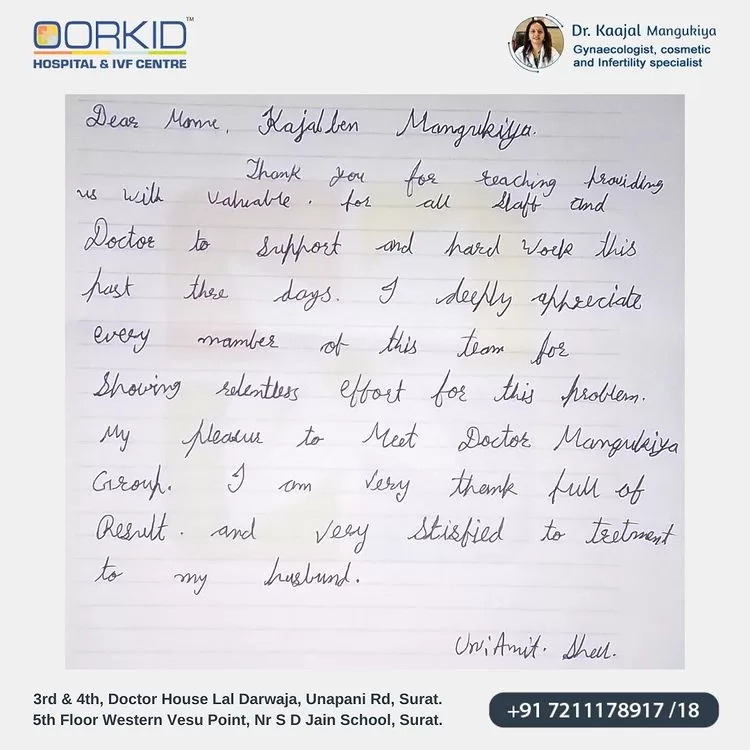 OORKID™
HOSPITAL & IVF CENTRE
Dr. Kaajal Mangukiya
Gynaecologist, cosmetic
and Infertility specialist
Dear Mome, Kajalben Mangukiya.
Thank you for reaching providing
us with valuable. for all staff and
Doctor to support and hard work this
past three days. I deeply appreciate
every mamber of this team for
Showing relentless effort for this problem.
My pleasur to Meet Doctor Mangukiya
Group. I am very thank full of
Result. and very Stisfied to tretment
to my husbund.
Urvi Amit.
3rd & 4th, Doctor House Lal Darwaja, Unapani Rd, Surat.
5th Floor Western Vesu Point, Nr S D Jain School, Surat.
+91 7211178917 /18